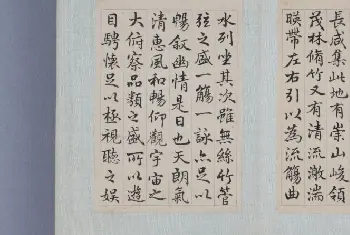 長咸集此地有崇山峻領
茂林脩竹又有清流激湍
暎帶左右引以為流觴曲
水列坐其次雖無絲竹管
弦之盛一觴一詠亦足以
暢叙幽情是日也天朗氣
清惠風和暢仰觀宇宙之
大俯察品類之盛所以遊
目騁懷足以極視聽之娛